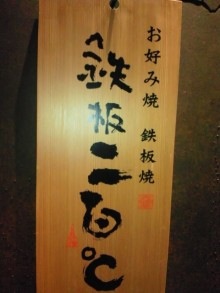 お好み焼 鉄板焼
鉄板二百℃